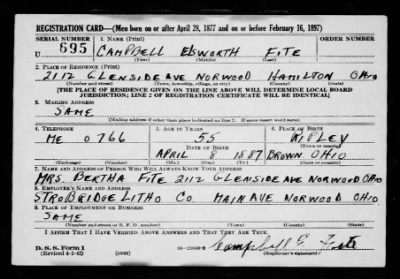 REGISTRATION CARD—(Men born on or after April 28, 1877 and on or before February 16, 1897)
SERIAL NUMBER 1. NAME (Print) ORDER NUMBER
U 695 CAMPBELL ELSWORTH FITE
(First) (Middle) (Last)
2. PLACE OF RESIDENCE (Print)
2112 GLENSIDE AVE NORWOOD HAMILTON OHIO
(Number and street) (Town, township, village, or city) (County) (State)
[THE PLACE OF RESIDENCE GIVEN ON THE LINE ABOVE WILL DETERMINE LOCAL BOARD
JURISDICTION; LINE 2 OF REGISTRATION CERTIFICATE WILL BE IDENTICAL]
3. MAILING ADDRESS
SAME
[Mailing address if other than place indicated on line 2. If same insert word same]
4. TELEPHONE 5. AGE IN YEARS 6. PLACE OF BIRTH
ME 0766 55 RIPLEY
DATE OF BIRTH (Town or county)
APRIL 8 1887 BROWN OHIO
(Exchange) (Number) (Mo.) (Day) (Yr.) (State or country)
7. NAME AND ADDRESS OF PERSON WHO WILL ALWAYS KNOW YOUR ADDRESS
MRS. BERTHA FITE 2112 GLENSIDE AVE NORWOOD OHIO
8. EMPLOYER'S NAME AND ADDRESS
STROBRIDGE LITHO CO. MAIN AVE NORWOOD OHIO
9. PLACE OF EMPLOYMENT OR BUSINESS
SAME
(Number and street or R. F. D. number) (Town) (County) (State)
I AFFIRM THAT I HAVE VERIFIED ABOVE ANSWERS AND THAT THEY ARE TRUE.
D. S. S. Form 1 Campbell E. Fite
(Revised 4-1-42) (over) (Registrant's signature)